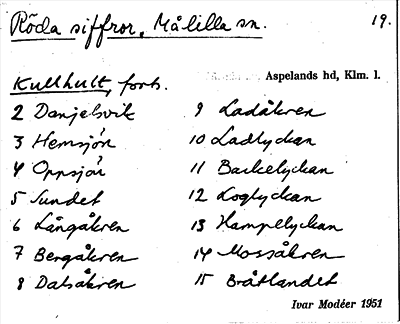 Röda siffror, Målilla sn. 19.
Kullhult, forts. Aspelands hd, Klm. l.
2 Danjelsvik
3 Hemsjön
4 Oppsjön
5 Sundet
6 Långåkren
7 Bergåkren
8 Dalsåkren
9 Ladåkren
10 Ladlyckan
11 Backelyckan
12 Loglyckan
13 Hampelyckan
14 Mossåkren
15 Bråtlandet
Ivar Modéer 1951